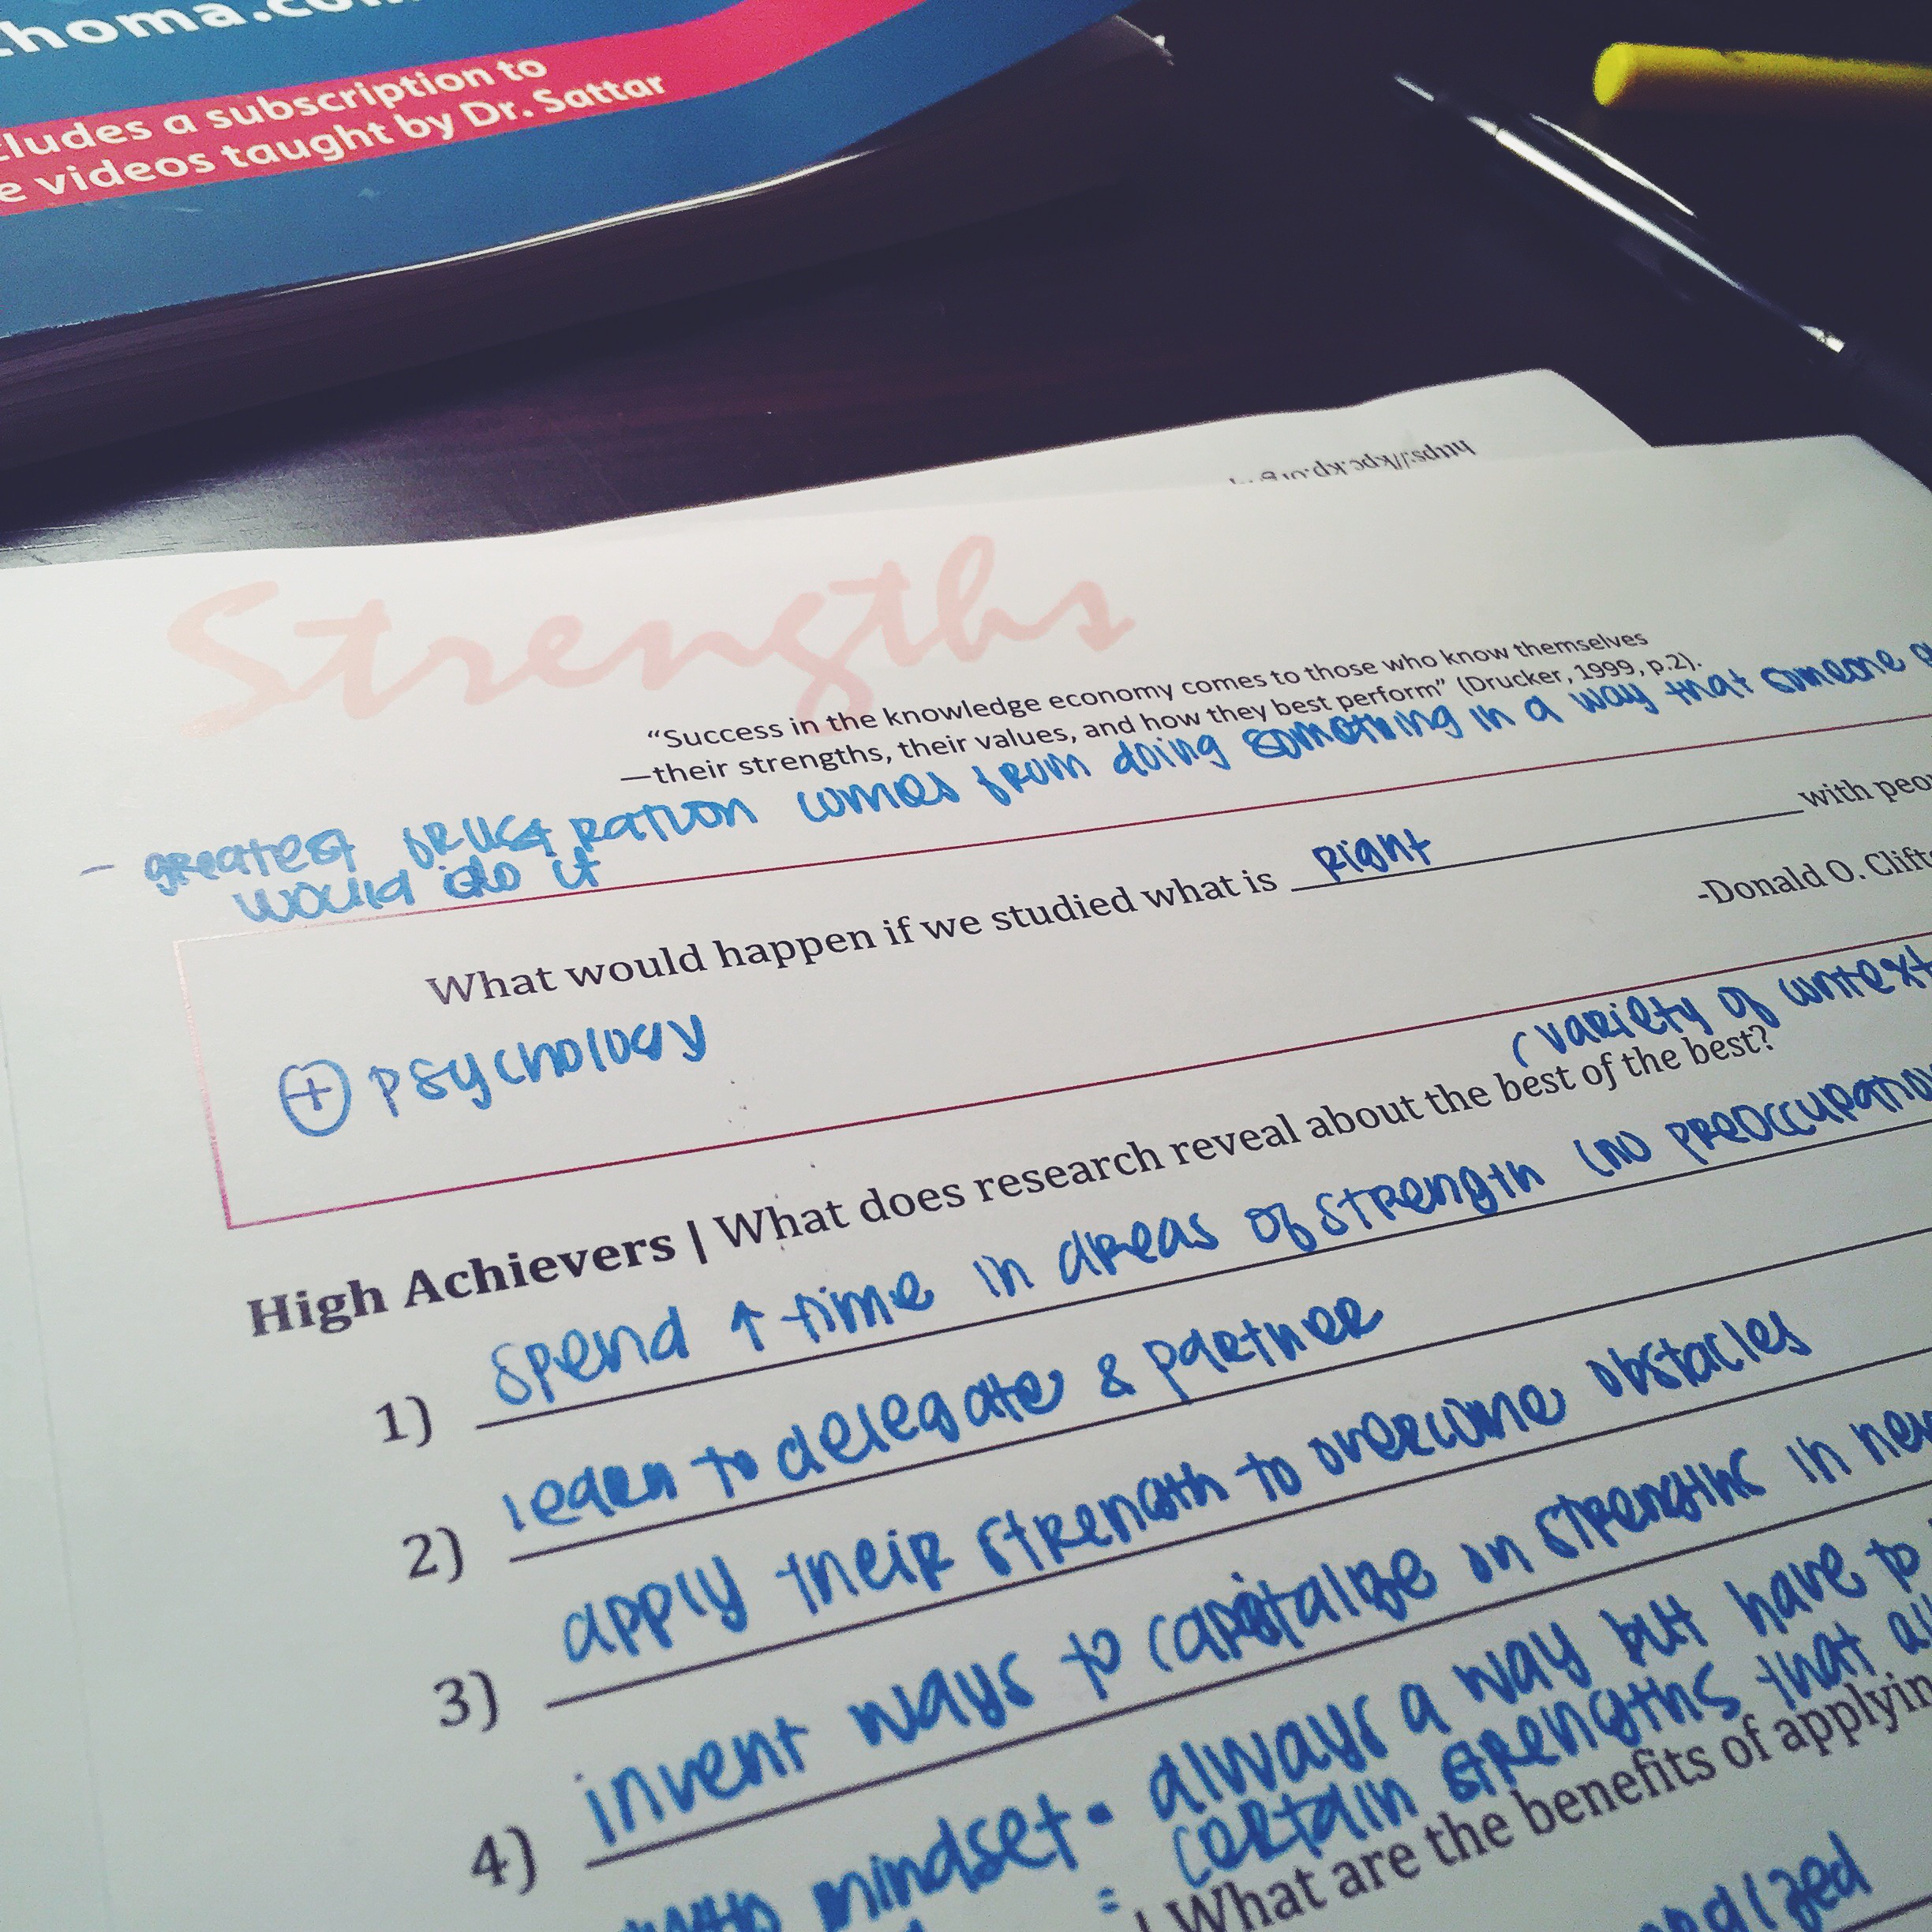 thoma.com
cludes a subscription to
e videos taught by Dr. Sattar
https://kpc.kp.org
Strengths
“Success in the knowledge economy comes to those who know themselves
—their strengths, their values, and how they best perform” (Drucker, 1999, p.2).
- greatest frustration comes from doing something in a way that someone
would do it
What would happen if we studied what is right with peo
-Donald O. Clift
+ psychology
(variety of context
High Achievers | What does research reveal about the best of the best?
1) spend ↑ time in areas of strength (no preoccupation
2) learn to delegate & partner
3) apply their strength to overcome obstacles
4) invent ways to capitalize on strengths in new
mindset • always a way but have to
= certain strengths that all
| What are the benefits of applyin